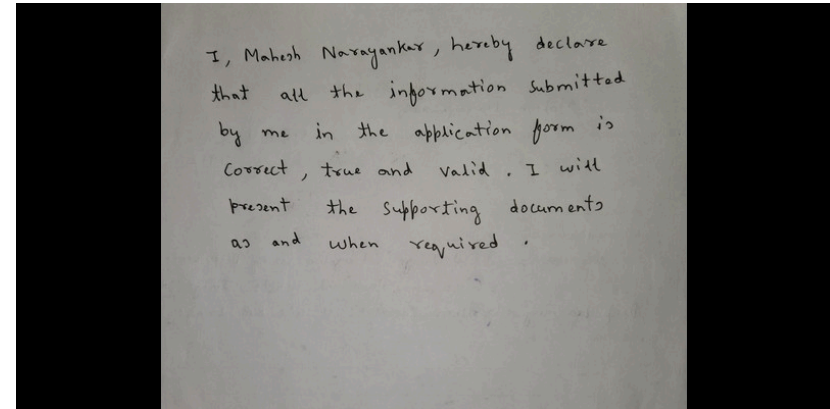 I, Mahesh Narayankar, hereby declare
that all the information submitted
by me in the application form is
correct, true and valid. I will
present the supporting documents
as and when required.